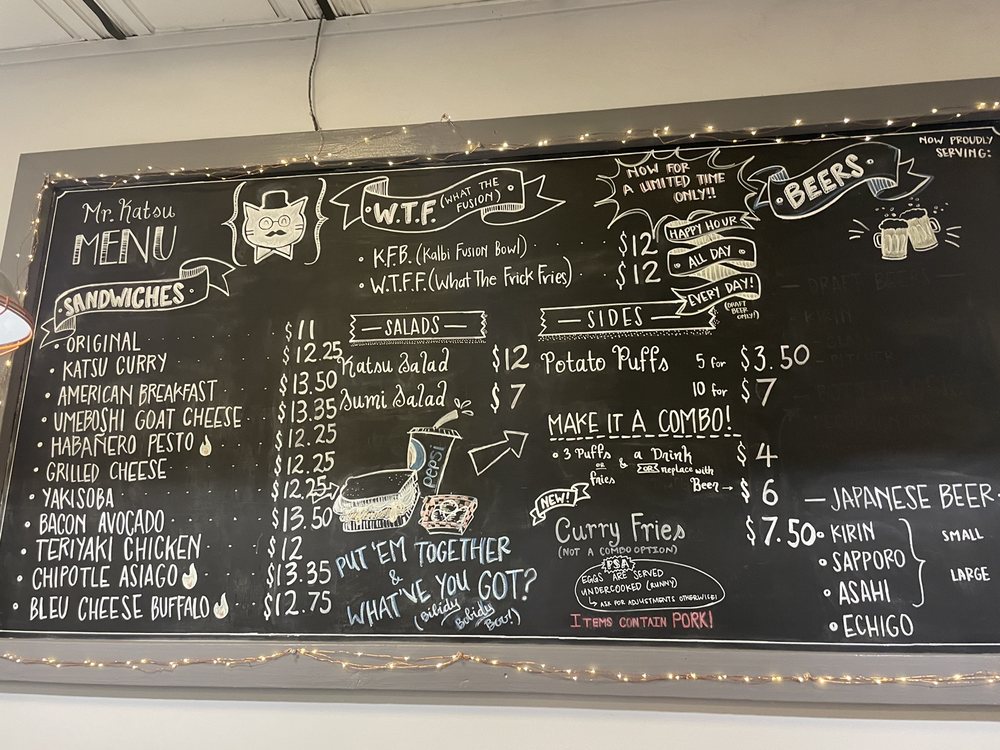 Mr. Katsu
MENU
SANDWICHES
• ORIGINAL $11
• KATSU CURRY $12.25
• AMERICAN BREAKFAST $13.50
• UMEBOSHI GOAT CHEESE $13.35
• HABAÑERO PESTO $12.25
• GRILLED CHEESE $12.25
• YAKISOBA $12.25
• BACON AVOCADO $13.50
• TERIYAKI CHICKEN $12
• CHIPOTLE ASIAGO $13.35
• BLEU CHEESE BUFFALO $12.75
W.T.F. (WHAT THE
FUSION)
• K.F.B. (Kalbi Fusion Bowl) $12
• W.T.F.F. (What The Frick Fries) $12
— SALADS —
Katsu Salad $12
Sumi Salad $7
pepsi
PUT 'EM TOGETHER
&
WHAT'VE YOU GOT?
(Bibidy
Bobidy
Boo!)
NOW FOR
A LIMITED TIME
ONLY!!
HAPPY HOUR
ALL DAY
EVERY DAY!
(DRAFT
BEER
ONLY!)
— SIDES —
Potato Puffs 5 for $3.50
10 for $7
MAKE IT A COMBO!
• 3 Puffs & a Drink $4
OR
fries
OR replace with
Beer → $6
NEW!
Curry Fries $7.50
(NOT A COMBO OPTION)
PSA
EGGS ARE SERVED
UNDERCOOKED (RUNNY)
ASK FOR ADJUSTMENTS OTHERWISE!
ITEMS CONTAIN PORK!
BEERS
NOW PROUDLY
SERVING:
— JAPANESE BEER
• KIRIN
• SAPPORO
• ASAHI
• ECHIGO
SMALL
LARGE